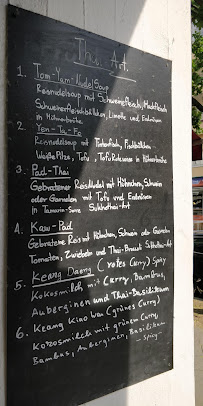 Thai Art.
1. Tom-Yum-NudelSoup
Reisnudelsoup mit Schweinefleisch, Hackfleisch
Schweinefleischbällchen, Limette und Erdnüssen
in Hühnerbrühe
2. Yen-Ta-Fo
Reisnudelsoup mit Tintenfisch, Fischbällchen
Weiße Pilze, Tofu, Tofu in Hühnerbrühe
3. Pad-Thai
Gebratener ReisNudel mit Hühnchen, Schwein
oder Garnelen mit Tofu und Erdnüssen
in Tamarin-Sauce Sukhothai-Art
4. Kaw-Pad
Gebratene Reis mit Hühnchen, Schwein oder Garnelen
Tomaten, Zwiebeln und Thai-
5. Keang Daeng (rotes Curry) Spicy
Kokosmilch mit Curry, Bambus,
Auberginen und Thai-Basilikum
6. Keang Kiao Wan (grünes Curry)
Kokosmilch mit grünem Curry
Bambus, Auberginen, Basilikum
- Spicy -